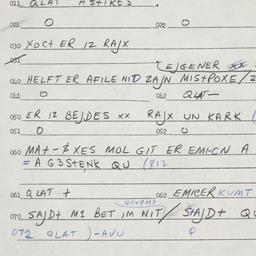 011 QLAT A STIKES
021 O 022 O
030 XOCT ER IZ RAJX
031
EJGENER xx
040 HELFT ER AFILE NIT ZAJN MISTPOXE/
041 O 042 QLAT—
050 ER IZ BEJDES xx RAJX UN KARK (
051 O 052 O
060 MAT-$XES MOL GIT ER EMICN A
= A G3STENK QU (812
061 QLAT + 062 EMICER KUMT
070 SAJD+ M1 BET IM NIT/ SAJD+ QU
072 QLAT )-AVU Q